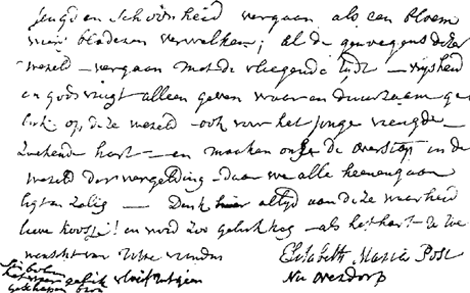 Jeugd en Schoonheid vergaan als een Bloem
wier bladeren verwelken; al de genoegens dezer
wereld – vergaan met de vliegende tyd – wysheid
en godsvrugt alleen geven waar en duurzaam ge
luk op deze wereld – ook voor het jonge vreugde –
zoekende hart – en maken onze de overstap in de
wereld der vergelding – daar we alle heenen gaan
ligt en zalig – Denk hier altyd aan deze waarheid
lieve koosje! en word zoo gelukkig – als het hart
wenscht van Uwe vriendin
Elisabeth Maria Post
Nu Overdorp